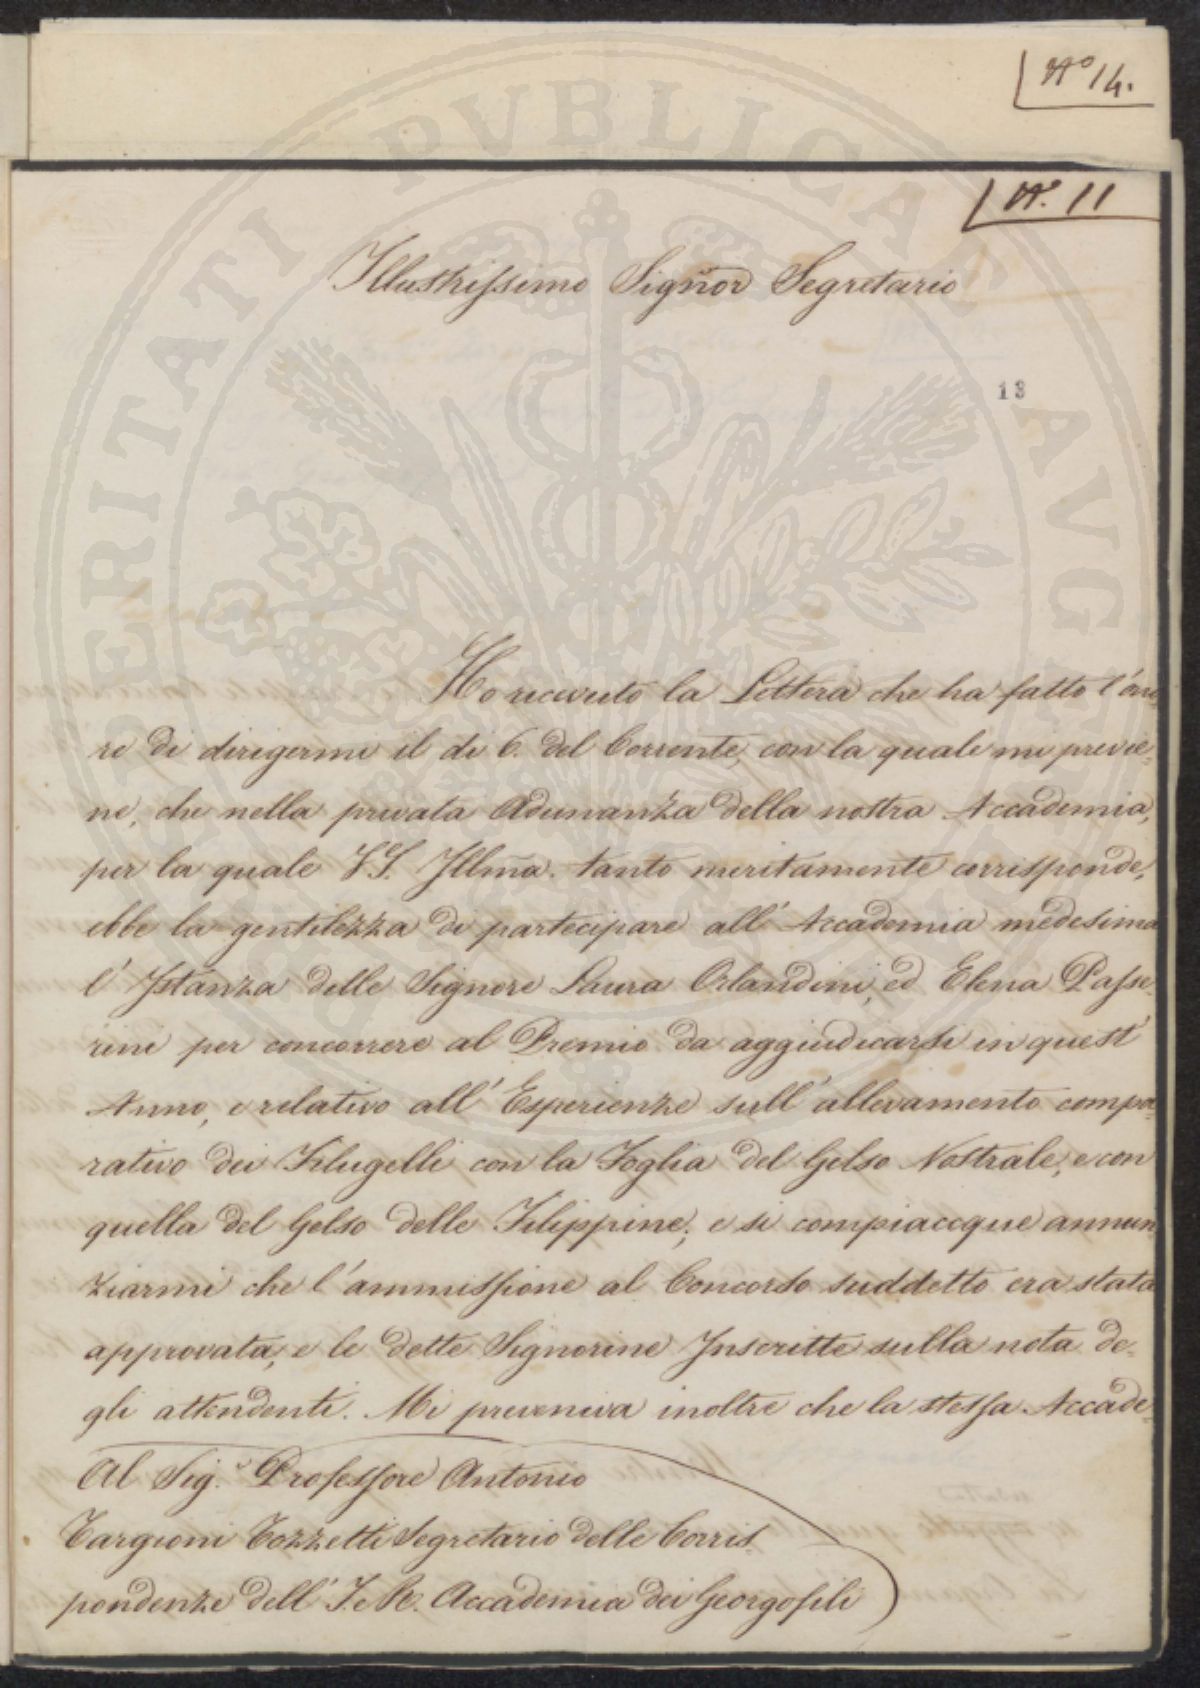 N.° 14.
N.° 11
Illustrissimo Signor Segretario
13
Ho ricevuto la Lettera che ha fatto l'ono
re di dirigermi il dì 6. del Corrente, con la quale mi previe-
ne, che nella privata Adunanza della nostra Accademia,
per la quale V.S. Illma. tanto meritamente corrisponde,
ebbe la gentilezza di partecipare all' Accademia medesima
l' Istanza delle Signore Laura Orlandini, ed Elena Passe-
rini per concorrere al Premio da aggiudicarsi in quest'
Anno, e relativo all' Esperienze sull' allevamento compa-
rativo dei Filugelli con la Foglia del Gelso Nostrale, e con
quella del Gelso delle Filippine; e si compiacque annun-
ziarmi che l'ammissione al Concorso suddetto era stata
approvata, e le dette Signorine Inscritte sulla nota de-
gli attendenti. Mi preveniva inoltre che la stessa Accade-
Al Sig.r Professore Antonio
Targioni Tozzetti Segretario delle Corris-
pondenze dell' I. e R. Accademia dei Georgofili
PROSPERITATI PVBLICAE AVGENDAE